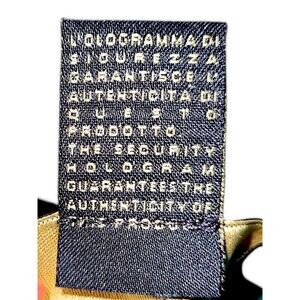 OLOGRAMMA DI
SICUREZZA
GARANTISCE L'
AUTENTICITA' DI
QUESTO
PRODOTTO
THE SECURITY
HOLOGRAM
GUARANTEES THE
AUTHENTICITY OF